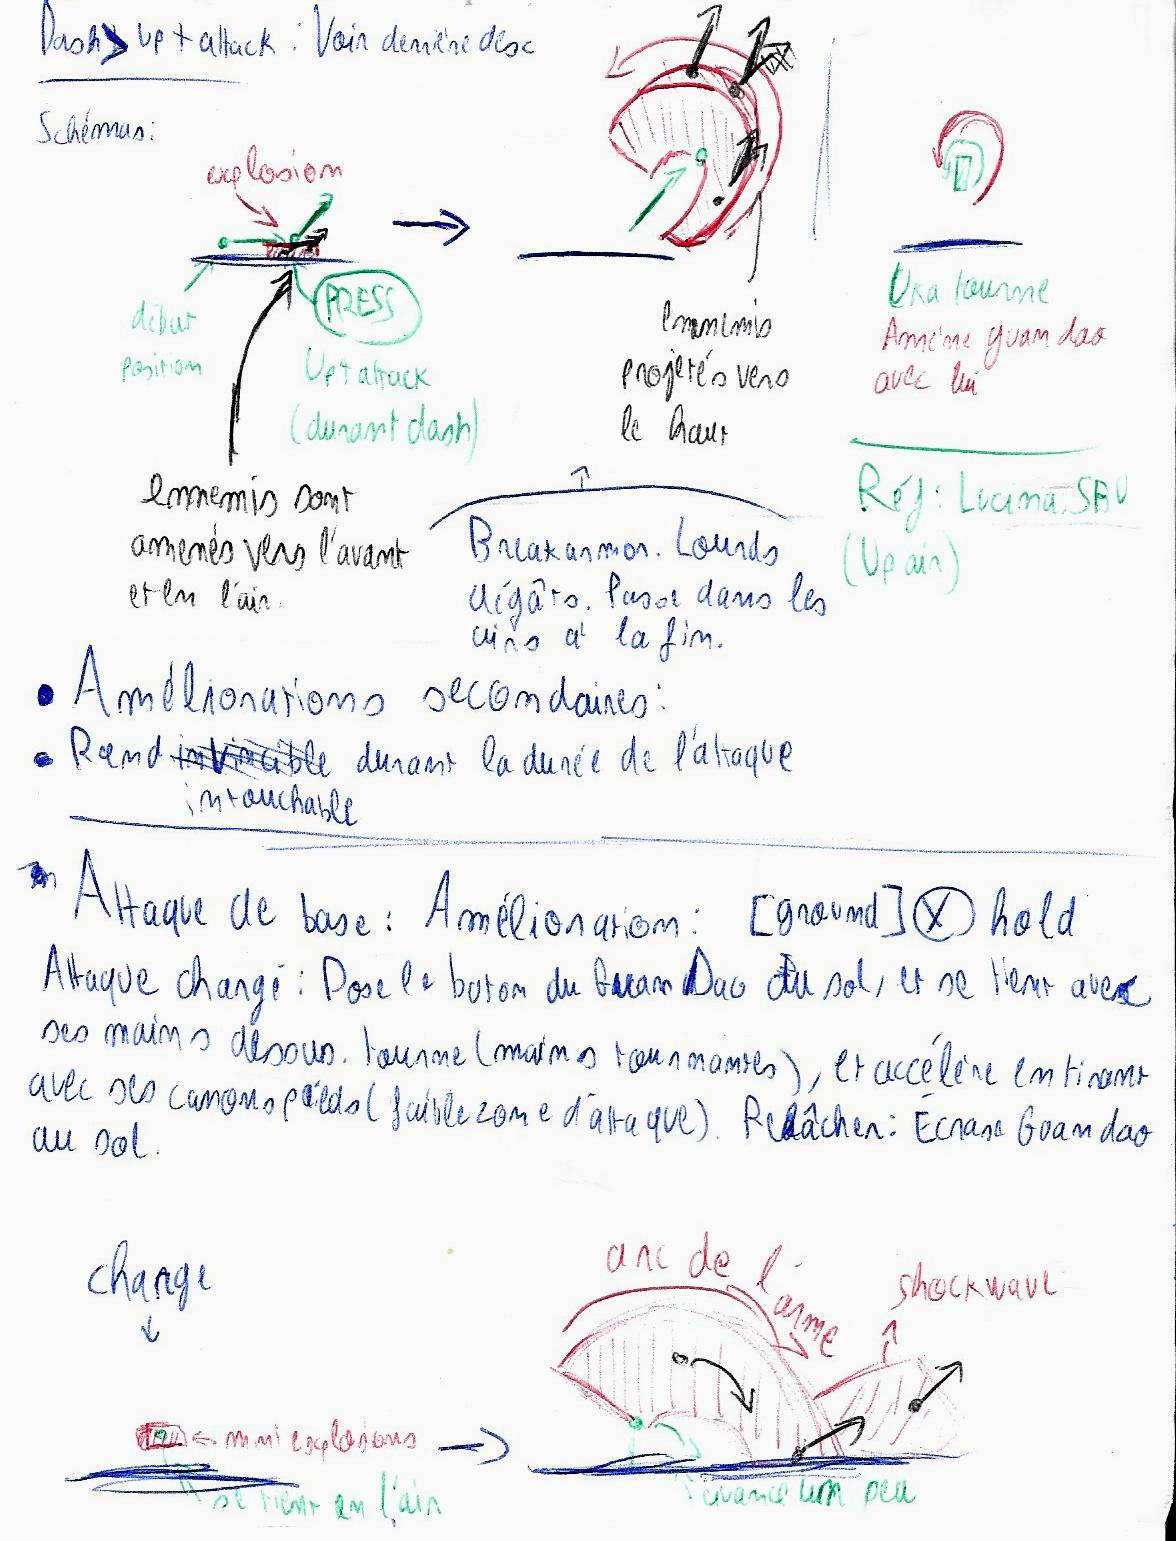 Dash > up + attack : Voir dernière desc
Schémas:
explosion
début
position
PRESS
Up + attack
(durant dash)
Ennemis sont
amenés vers l'avant
et en l'air.
Ennemis
projetés vers
le haut
Uka tourne
Amène guandao
avec lui
Réf: Lucina, SBU
(Up air)
Breakarmor. Lourds
dégâts. Passe dans les
airs à la fin.
• Améliorations secondaires:
• Rend invincible durant la durée de l'attaque
intouchable
Attaque de base: Amélioration: [ground] X hold
Attaque chargé: Pose le baton du Guan Dao au sol, et se tient avec
ses mains dessus. tourne (mains tournantes), et accélère en tirant
avec ses canons pieds (faible zone d'attaque). Relâcher: Écrase Guandao
au sol.
charge
mini explosions
se tient en l'air
arc de l'arme
shockwave
avance un peu